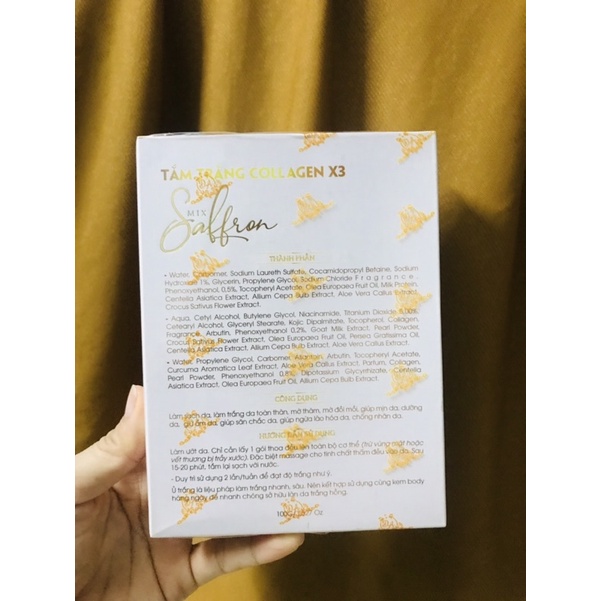 TẮM TRẮNG COLLAGEN X3
MIX
Saffron
THÀNH PHẦN
- Water, Carbomer, Sodium Laureth Sulfate, Cocamidopropyl Betaine, Sodium
Hydroxide 1%, Glycerin, Propylene Glycol, Sodium Chloride Fragrance,
Phenoxyethanol, 0.5%, Tocopheryl Acetate, Olea Europaea Fruit Oil, Milk Protein,
Centella Asiatica Extract, Allium Cepa Bulb Extract, Aloe Vera Callus Extract,
Crocus Sativus Flower Extract.
- Aqua, Cetyl Alcohol, Butylene Glycol, Niacinamide, Titanium Dioxide
Cetearyl Alcohol, Glyceryl Stearate, Kojic Dipalmitate, Tocopherol, Collagen,
Fragrance, Arbutin, Phenoxyethanol 0.2%, Goat Milk Extract, Pearl Powder,
Crocus Sativus Flower Extract, Olea Europaea Fruit Oil, Persea Gratissima Oil,
Centella Asiatica Extract, Allium Cepa Bulb Extract, Aloe Vera Callus Extract.
- Water, Propylene Glycol, Carbomer, Allantoin, Arbutin, Tocopheryl Acetate,
Curcuma Aromatica Leaf Extract, Aloe Vera Callus Extract, Parfum, Collagen,
Pearl Powder, Phenoxyethanol 0.8%, Dipotassium Glycyrrhizate, Centella
Asiatica Extract, Olea Europaea Fruit Oil, Allium Cepa Bulb Extract
CÔNG DỤNG
Làm sạch da, làm trắng da toàn thân, mờ thâm, mờ đồi mồi, giúp mịn da, dưỡng
da, giữ ẩm da, giúp săn chắc da, giúp ngừa lão hóa da, chống nhăn da.
HƯỚNG DẪN SỬ DỤNG
Làm ướt da. Chỉ cần lấy 1 gói thoa đều lên toàn bộ cơ thể (trừ vùng mặt hoặc
vết thương bị trầy xước). Đặc biệt massage cho tinh chất thấm đều vào da. Sau
15-20 phút, tắm lại sạch với nước.
- Duy trì sử dụng 2 lần/tuần để đạt độ trắng như ý.
Ủ trắng là liệu pháp làm trắng nhanh, sâu. Nên kết hợp sử dụng cùng kem body
hàng ngày để nhanh chóng sở hữu làn da trắng hồng.